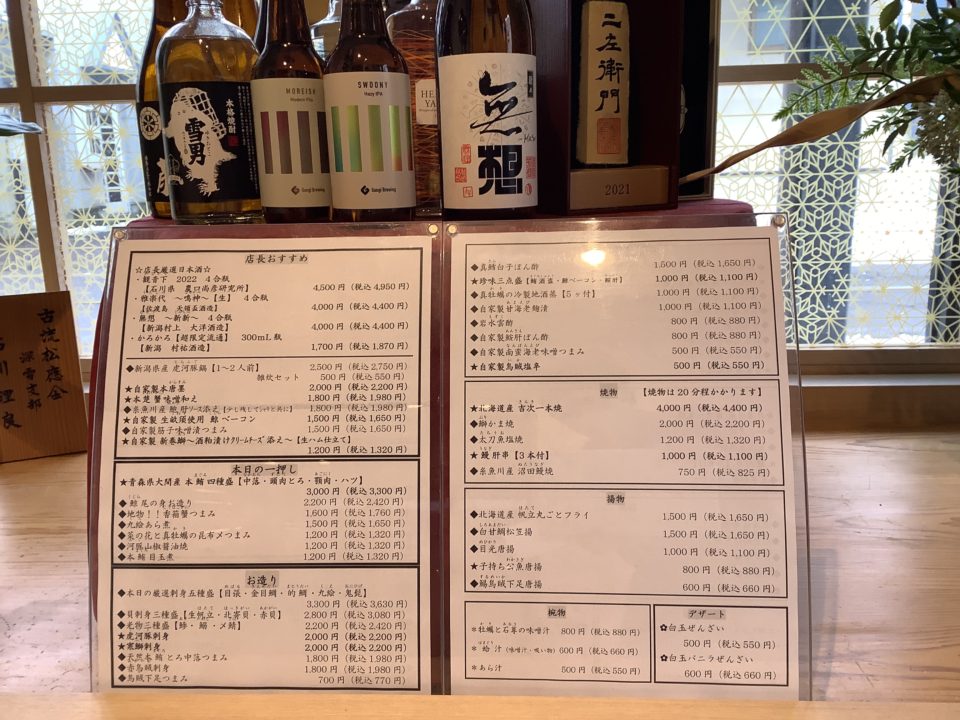 本格焼酎
雪男
MOREISH
Modern Pils
Gangi Brewing
SWOONY
Hazy IPA
Gangi Brewing
無想
二左衛門
2021
古流松應会
深雪支部
店長おすすめ
☆店長厳選日本酒☆
・観音下 2022 4合瓶
【石川県 農口尚彦研究所】 4,500円(税込4,950円)
・雅楽代 ～鳴神～【生】 4合瓶
【佐渡島 天領盃酒造】 4,000円(税込4,400円)
・無想 ～新新～ 4合瓶
【新潟村上 大洋酒造】 4,000円(税込4,400円)
・かろかろ【超限定流通】 300mL瓶
【新潟 村祐酒造】 1,700円(税込1,870円)
◆新潟県産 虎河豚鍋【1～2人前】 2,500円(税込2,750円)
雑炊セット 500円(税込550円)
★自家製本唐墨 2,000円(税込2,200円)
★本楚蟹味噌和え 1,800円(税込1,980円)
◆糸魚川産 鮟肝ソース添え 1,800円(税込1,980円)
★自家製 生畝須使用 鯨ベーコン 1,500円(税込1,650円)
◆自家製筋子味噌漬つまみ 1,500円(税込1,650円)
★自家製 新巻鰤～酒粕漬けクリームチーズ添え～【生ハム仕立て】
1,200円(税込1,320円)
本日の一押し
★青森県大間産 本鮪 四種盛【中落・頭肉とろ・顎肉・ハツ】
3,000円(税込3,300円)
◆鯨尾の身お造り 2,200円(税込2,420円)
◆地物！！香箱蟹つまみ 1,600円(税込1,760円)
◆九絵あら煮 1,500円(税込1,650円)
◆菜の花と真牡蠣の昆布〆つまみ 1,200円(税込1,320円)
◆河豚山椒醤油焼 1,200円(税込1,320円)
◆本鮪目玉煮 1,200円(税込1,320円)
お造り
◆本日の厳選刺身五種盛【目張・金目鯛・的鯛・九絵・鬼髭】
3,300円(税込3,630円)
◆貝刺身三種盛【生帆立・北寄貝・赤貝】 2,800円(税込3,080円)
◆光物三種盛【鯵・鰯・〆鯖】 2,200円(税込2,420円)
★虎河豚刺身 2,000円(税込2,200円)
★寒鰤刺身 2,000円(税込2,200円)
◆天然本鮪とろ中落つまみ 1,800円(税込1,980円)
◆赤烏賊刺身 1,800円(税込1,980円)
◆烏賊下足つまみ 700円(税込770円)
◆真鱈白子ぽん酢 1,500円(税込1,650円)
★珍味三点盛【鮪酒盗・鯨ベーコン・鮟肝】 1,000円(税込1,100円)
◆真牡蠣の冷製地酒蒸【5ヶ付】 1,000円(税込1,100円)
◆自家製甘海老麹漬 1,000円(税込1,100円)
◆岩水雲酢 800円(税込880円)
◆自家製鮟肝ぽん酢 800円(税込880円)
◆自家製南蛮海老味噌つまみ 500円(税込550円)
★自家製烏賊塩辛 500円(税込550円)
焼物 【焼物は20分程かかります】
★北海道産 吉次一本焼 4,000円(税込4,400円)
◆鰤かま焼 2,000円(税込2,200円)
◆太刀魚塩焼 1,200円(税込1,320円)
★鰻肝串【3本付】 1,000円(税込1,100円)
◆糸魚川産 沼田鰻焼 750円(税込825円)
揚物
◆北海道産 帆立丸ごとフライ 1,500円(税込1,650円)
◆白甘鯛松笠揚 1,500円(税込1,650円)
◆目光唐揚 1,000円(税込1,100円)
★子持ち公魚唐揚 800円(税込880円)
◆鯣烏賊下足唐揚 600円(税込660円)
椀物
＊牡蠣と石蓴の味噌汁 800円(税込880円)
＊蛤汁(味噌汁・吸い物) 600円(税込660円)
＊あら汁 500円(税込550円)
デザート
✿白玉ぜんざい
500円(税込550円)
✿白玉バニラぜんざい
600円(税込660円)